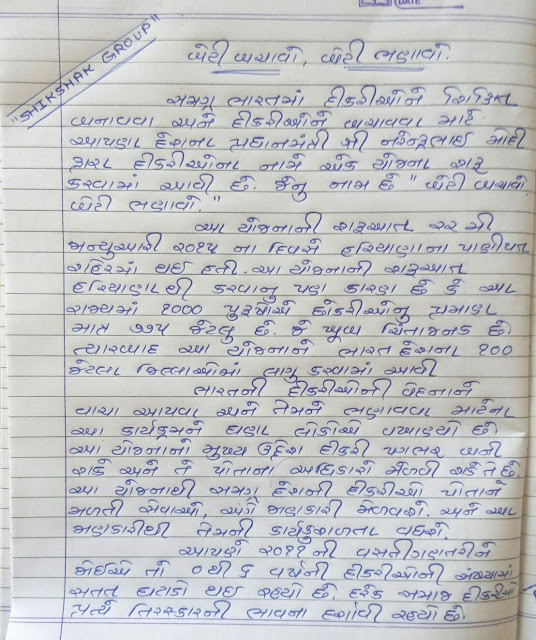 "SHIKSHAK GROUP"
DATE
બેટી બચાવો, બેટી ભણાવો.
સમગ્ર ભારતમાં દીકરીઓને શિક્ષિત
બનાવવા અને દીકરીઓને બચાવવા માટે
આપણા દેશના પ્રધાનમંત્રી શ્રી નરેન્દ્રભાઇ મોદી
દ્વારા દીકરીઓના નામે એક યોજના શરૂ
કરવામાં આવી છે. જેનુ નામ છે "બેટી બચાવો.
બેટી ભણાવો."
આ યોજનાની શરૂઆત ૨૨ મી
જાન્યુઆરી ૨૦૧૫ ના દિવસે હરિયાણાના પાણીપત
શહેરમાં થઇ હતી. આ યોજનાની શરૂઆત
હરિયાણાથી કરવાનુ પણ કારણ છે કે આ
રાજ્યમાં ૧૦૦૦ પુરૂષોએ છોકરીઓનુ પ્રમાણ
માત્ર ૭૭૫ જેટલુ છે. જે ખૂબ ચિંતાજનક છે.
ત્યારબાદ આ યોજનાને ભારત દેશના ૧૦૦
જેટલા જિલ્લાઓમાં લાગુ કરવામાં આવી
ભારતની દીકરીઓની વેદનાને
વાચા આપવા અને તેમને ભણાવવા માટેના
આ કાર્યક્રમને ઘણા લોકોએ વખાણ્યો છે
આ યોજનાનો મુખ્ય ઉદ્દેશ દીકરી પગભર બની
શકે અને તે પોતાના અધિકારો મેળવી શકે તે છે.
આ યોજનાથી સમગ્ર દેશની દીકરીઓ પોતાને
મળતી સેવાઓ, અંગે જાણકારી મેળવશે. અને આ
જાણકારીથી તેમની કાર્યકુશળતા વધશે.
આપણે ૨૦૧૧ ની વસતીગણતરીને
જોઇએ તો ૦ થી ૬ વર્ષની દીકરીઓની સંખ્યામાં
સતત ઘટાડો થઇ રહ્યો છે. દરેક સમાજ દીકરીઓ
પ્રત્યે તિરસ્કારની ભાવના દર્શાવી રહ્યો છે.